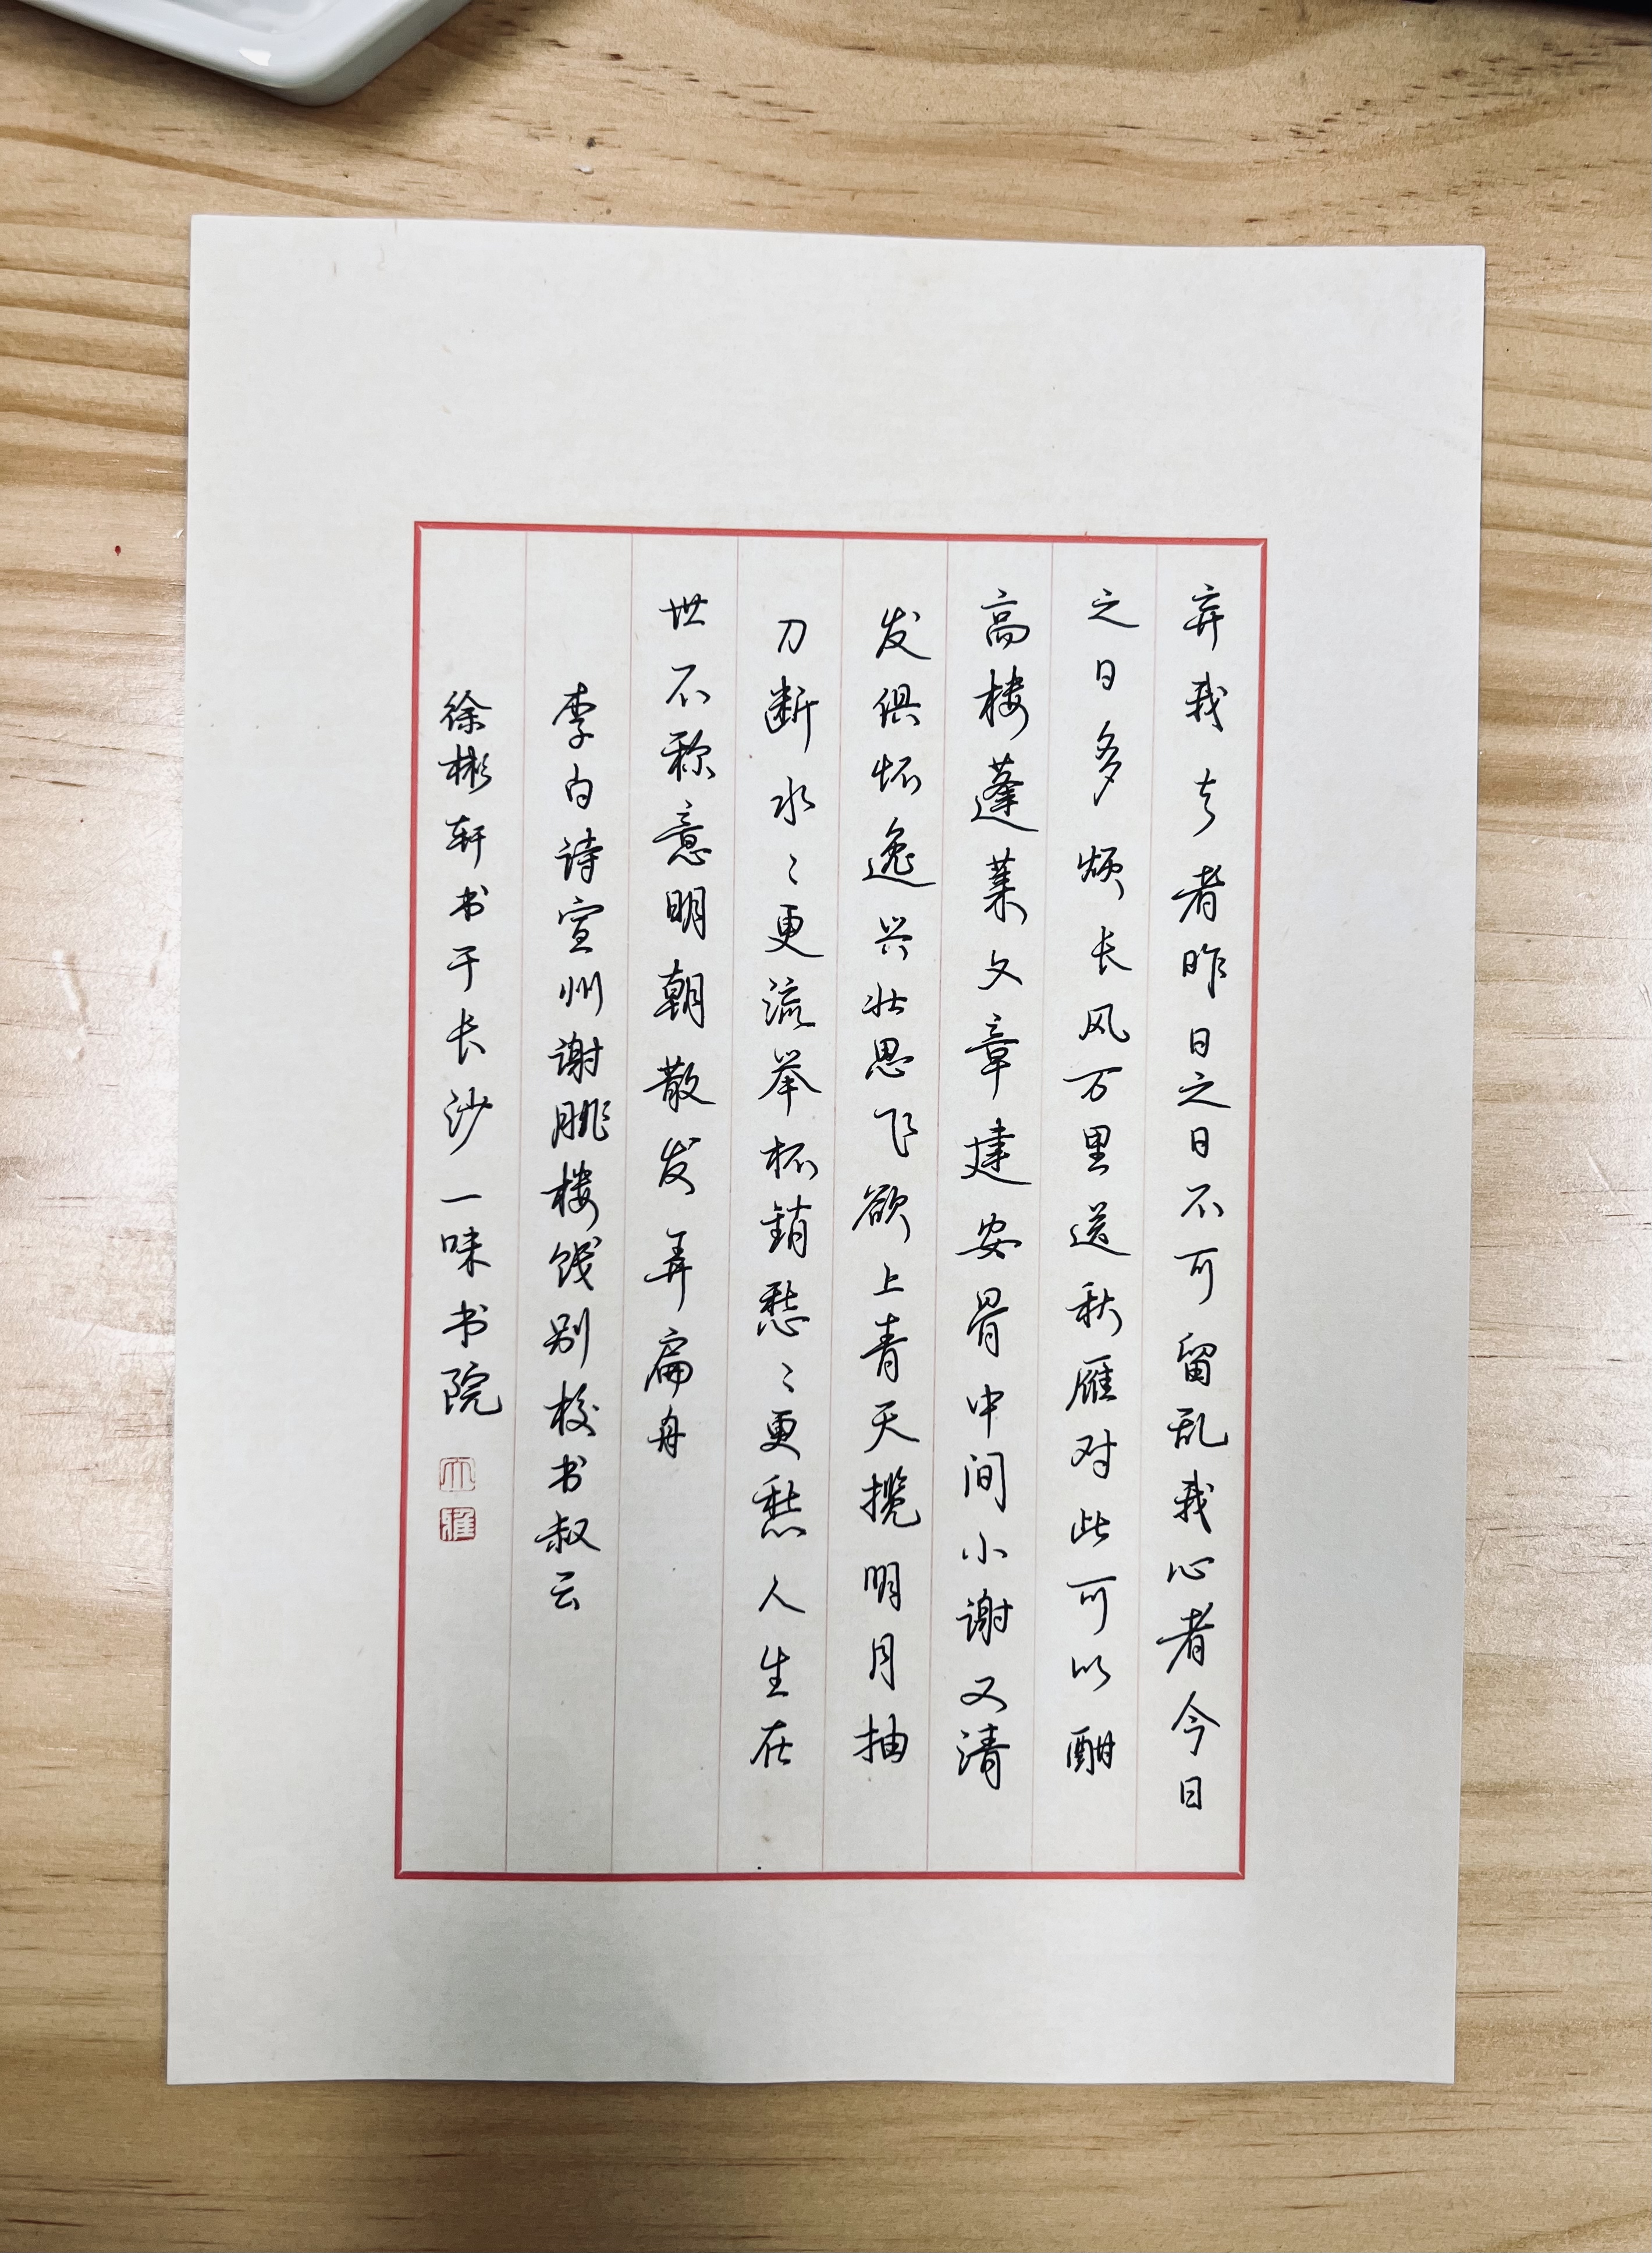 弃我去者昨日之日不可留乱我心者今日
之日多烦长风万里送秋雁对此可以酣
高楼蓬莱文章建安骨中间小谢又清
发俱怀逸兴壮思飞欲上青天揽明月抽
刀断水〻更流举杯销愁〻更愁人生在
世不称意明朝散发弄扁舟
李白诗宣州谢朓楼饯别校书叔云
徐彬轩书于长沙一味书院
大
雅